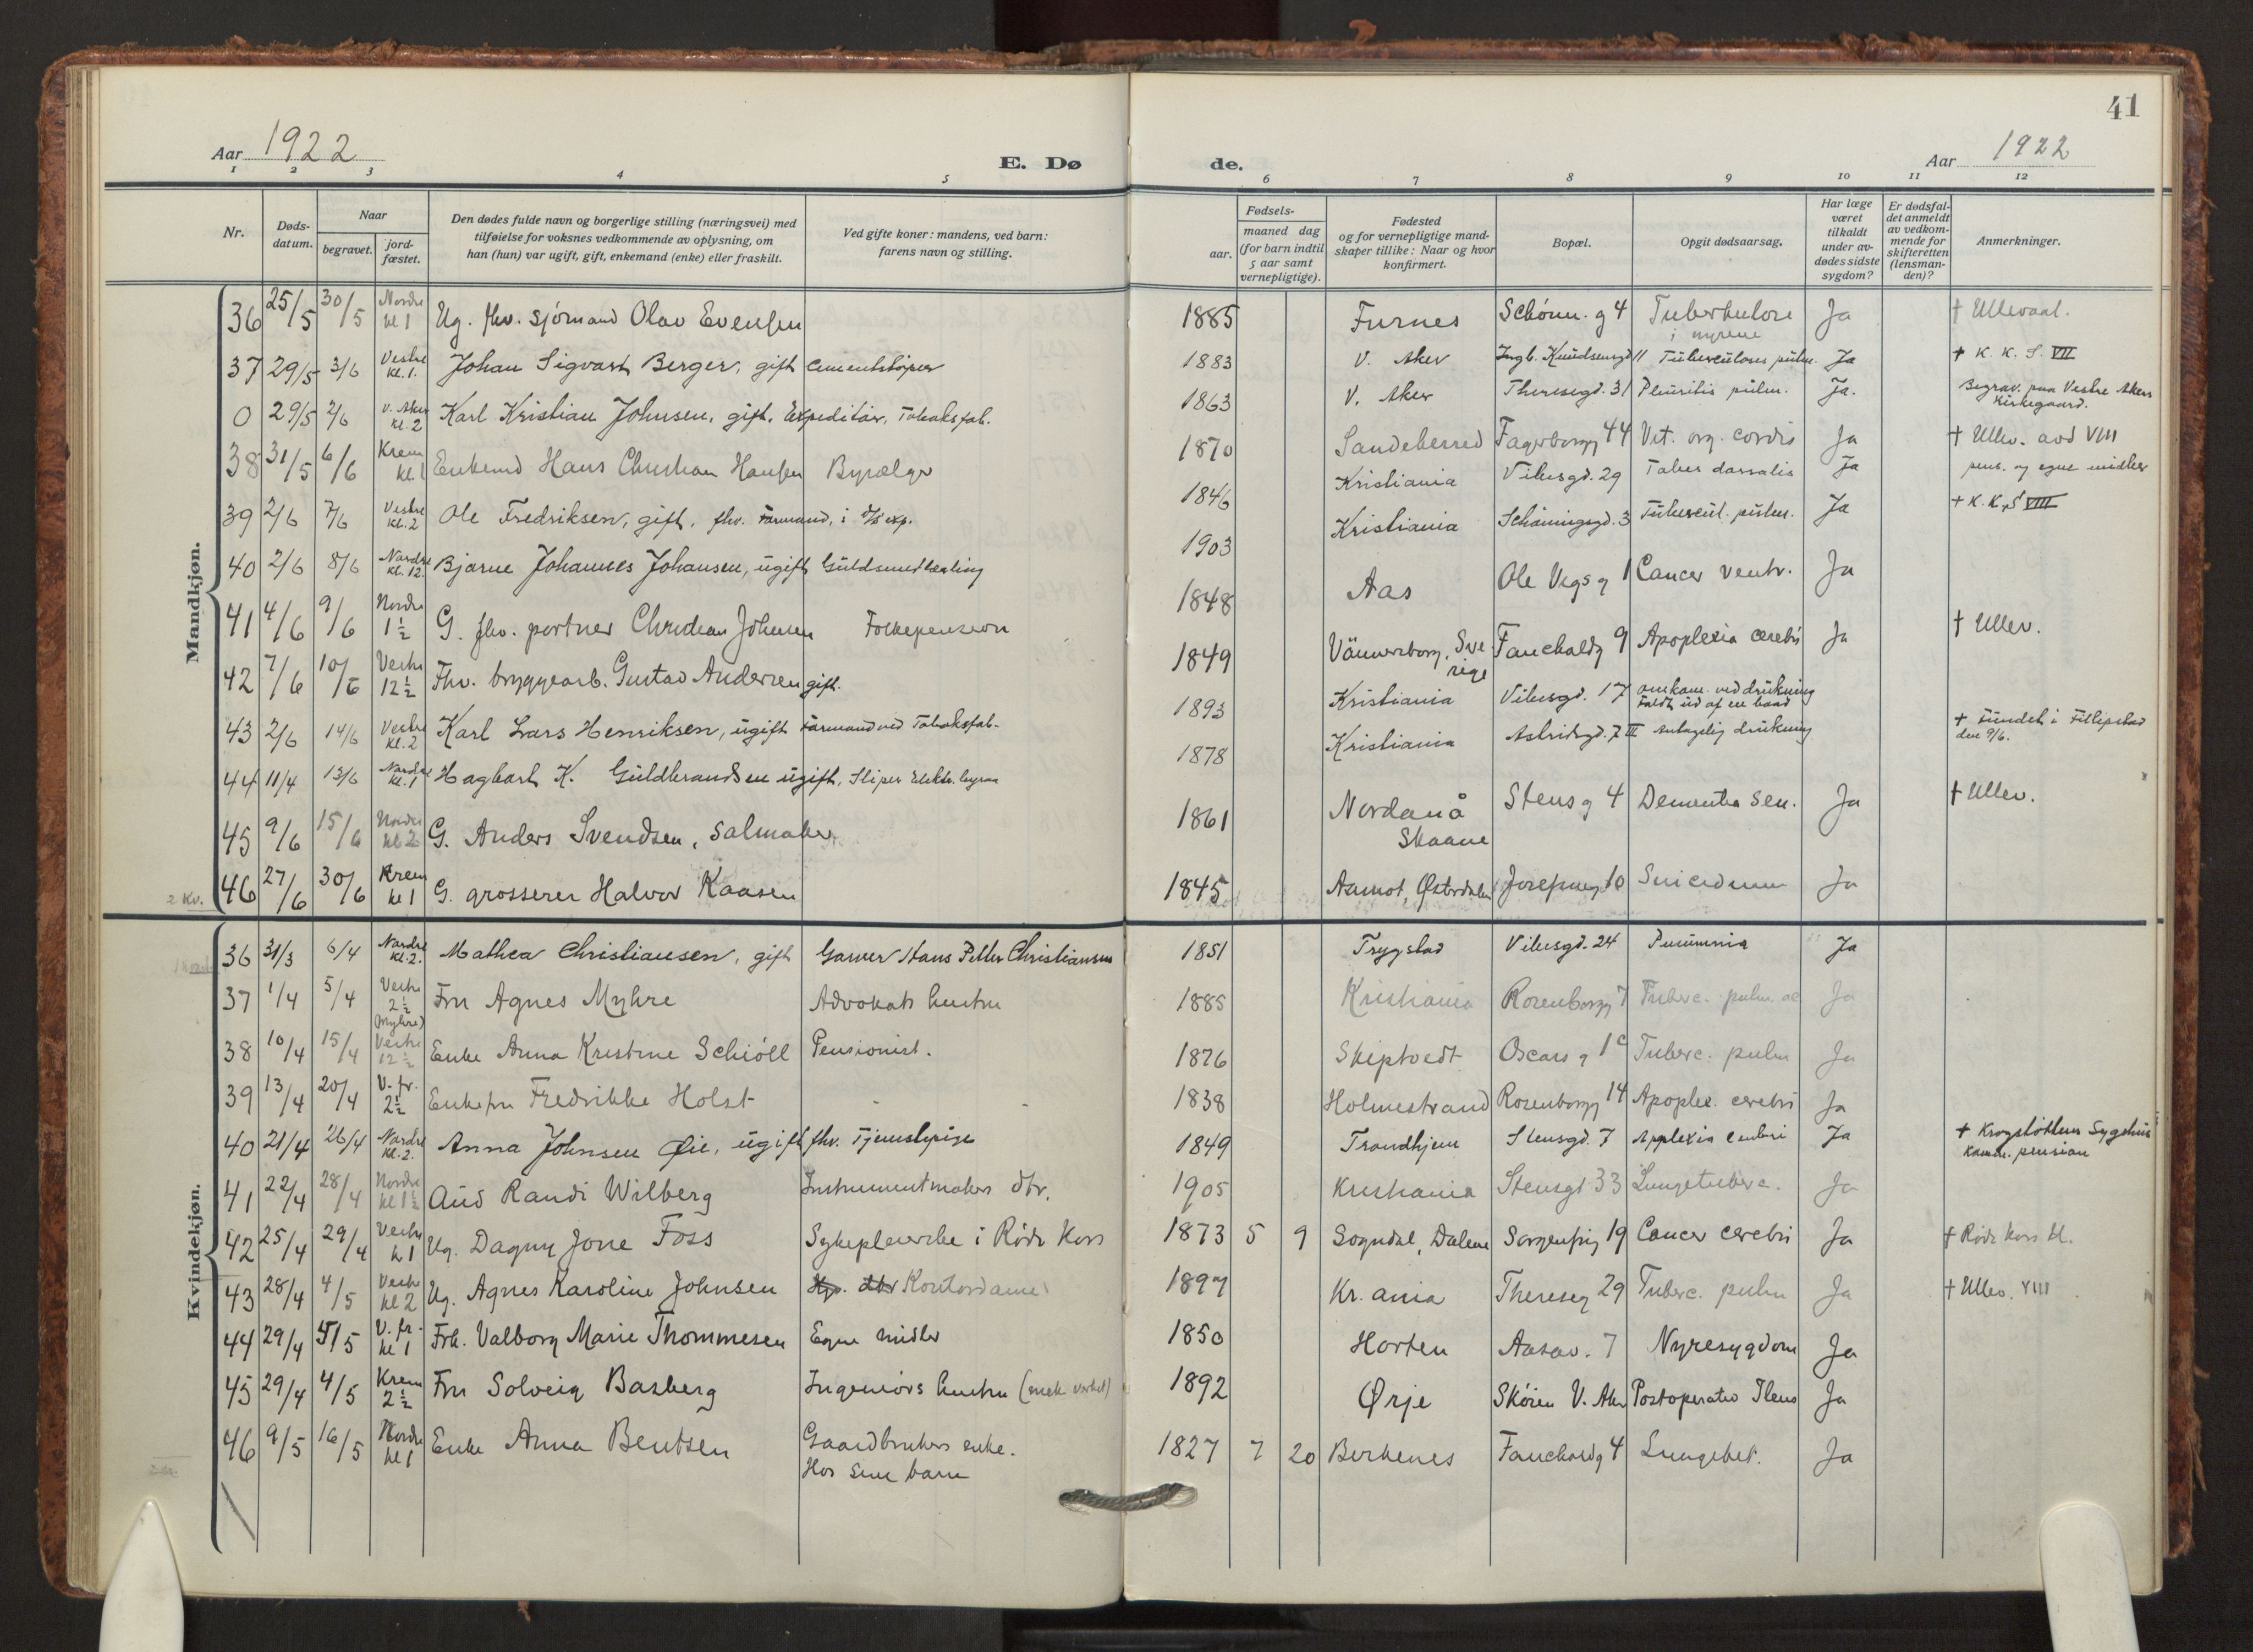 41
Aar 1922
E. Dø de.
Aar 1922
1 2 3 4 5 6 7 8 9 10 11 12
Nr.
Døds-datum.
Naar
begravet.
jord-fæstet.
Den dødes fulde navn og borgerlige stilling (næringsvei) med
tilføielse for voksnes vedkommende av oplysning, om
han (hun) var ugift, gift, enkemand (enke) eller fraskilt.
Ved gifte koner: mandens, ved barn:
farens navn og stilling.
Fødsels-
aar.
maaned dag
(for barn indtil
5 aar samt
vernepligtige).
Fødested
og for vernepligtige mand-
skaper tillike: Naar og hvor
konfirmert.
Bopæl.
Opgit dødsaarsag.
Har læge
været
tilkaldt
under av-
dødes sidste
sygdom?
Er dødsfal-
det anmeldt
av vedkom-
mende for
skifteretten
(lensman-
den)?
Anmerkninger.
Mandkjøn.
36 25/5 30/5 Nordre kl 1 Ug. fhv. sjömand Olav Evensen 1885 Furnes Schönn. g 4 Tuberkulose i nyrene Ja † Ullevaal.
37 29/5 3/6 Vestre kl. 1. Johan Sigvart Berger, gift Cementstöper 1883 V. Aker Ingb. Knudsensgd 11 Tuberculoses pulm. Ja † K. K. S. VII
0 29/5 2/6 V. Aker kl. 2 Karl Kristian Johnsen, gift. Expeditör, Tobaksfab. 1863 V. Aker Theresegd. 31 Pleuritis pulm. Ja. Begrav. paa Vestre Akers Kirkegaard.
38 31/5 6/6 Krem kl 1 Enkemd Hans Christian Hansen 1870 Sandeherred Fagerborgg 44 Vit. org. cordis Ja † Ullev. avd VIII
39 2/6 7/6 Vestre kl. 2 Ole Fredriksen, gift, fhv. Formand, i 1846 Kristiania Vibesgd. 29 Tabes dorsalis Ja pens. og egne midler
40 2/6 8/6 Nordre kl. 12. Bjarne Johannes Johansen, ugift Guldsmedlærling 1903 Kristiania Schöningsgd. 3 Tubercul. pulm. Ja † K. K. S VIII
41 4/6 9/6 Nordre 1½ G. fhv. portner Christian Johnsen Folkepension 1848 Aas Ole Vigs g 1 Cancer ventr. Ja
42 7/6 10/6 Vestre 12½ Fhv. bryggearb. Gustav Andersen gift. 1849 Vännersborg, Sverige Fauchaldg 9 Apoplexia cerebri Ja † Ullev.
43 2/6 14/6 Vestre kl. 2 Karl Lars Henriksen, ugift Formand ved Tobaksfab. 1893 Kristiania Vibesgd. 17 omkom. ved drukning Faldt ud af en baad † Fundet i Fillipstad den 9/6.
44 11/4 13/6 Nordre kl. 1 Hagbart K. Guldbrandsen ugift, Sliper Elektr. byraa 1878 Kristiania Astridsgd. 7 III Antagelig drukning
45 9/6 15/6 Nordre kl 2 G. Anders Svendsen, salmaker. 1861 Nordanå Skaane Stensg 4 Dementia sen. Ja † Ullev.
2 Kv. 46 27/6 30/6 Krem kl 1 G. grosserer Halvor Kaasen 1845 Aamot, Østerdalen Josefineg 10 Suicidium Ja
Kvindekjøn.
36 31/3 6/4 Nordre kl. 2. Mathea Christiansen, gift Garver Hans Petter Christiansen 1851 Trygstad Vibesgd. 24 Ja
37 1/4 5/4 Vestre 2½ (Myhre) Fru Agnes Myhre Advokats hustru 1885 Kristiania Rosenborgg 7 Tuberc. pulm. ac Ja
38 10/4 15/4 Vestre 12½ Enke Anna Kristine Schiöll Pensionist. 1876 Skiptvedt Oscars g 1c Tuberc. pulm Ja
39 13/4 20/4 V. fr. 2½ Enkefru Fredrikke Holst 1838 Holmestrand Rosenborgg 14 Apoplex. cerebri Ja
40 21/4 26/4 Nordre kl. 2. Anna Johnsen Øie, ugift fhv. Tjenestepige 1849 Trondhjem Stensgd. 7 Applexia Ja † Krogstöttens Sygehus Komm. pension
41 22/4 28/4 Nordre kl 1½ Aud Randi Wilberg Instrumentmakers dtr. 1905 Kristiania Stensgt 33 Lungetuberc. Ja
42 25/4 29/4 Vestre kl 1 Ug. Dagny Jone Foss Sykepleierske i Röde Kors 1873 5 9 Sogndal, Dalene Sorgenfrig 19 Cancer cerebri Ja † Röde Kors kl.
43 28/4 4/5 Vestre kl 2 Ug. Agnes Karoline Johnsen Kontordame 1897 Kr.ania Thereseg 29 Tuberc. pulm Ja † Ullev. VIII
44 29/4 5/5 V. fr. kl 1 Frk. Valborg Marie Thommesen Egne midler 1850 Horten Aasav. 7 Nyresygdom Ja
45 29/4 4/5 Krem 2½ Fru Solveig Basberg Ingeniörs hustru (mek verkst) 1892 Ørje Skören V. Aker Postoperativ Ileus Ja
46 9/5 16/5 Nordre kl 1 Enke Anna Bentsen Gaardbrukers enke. Hos sine barn 1827 7 20 Birkenes Fauchaldg 4 Lungebet. Ja